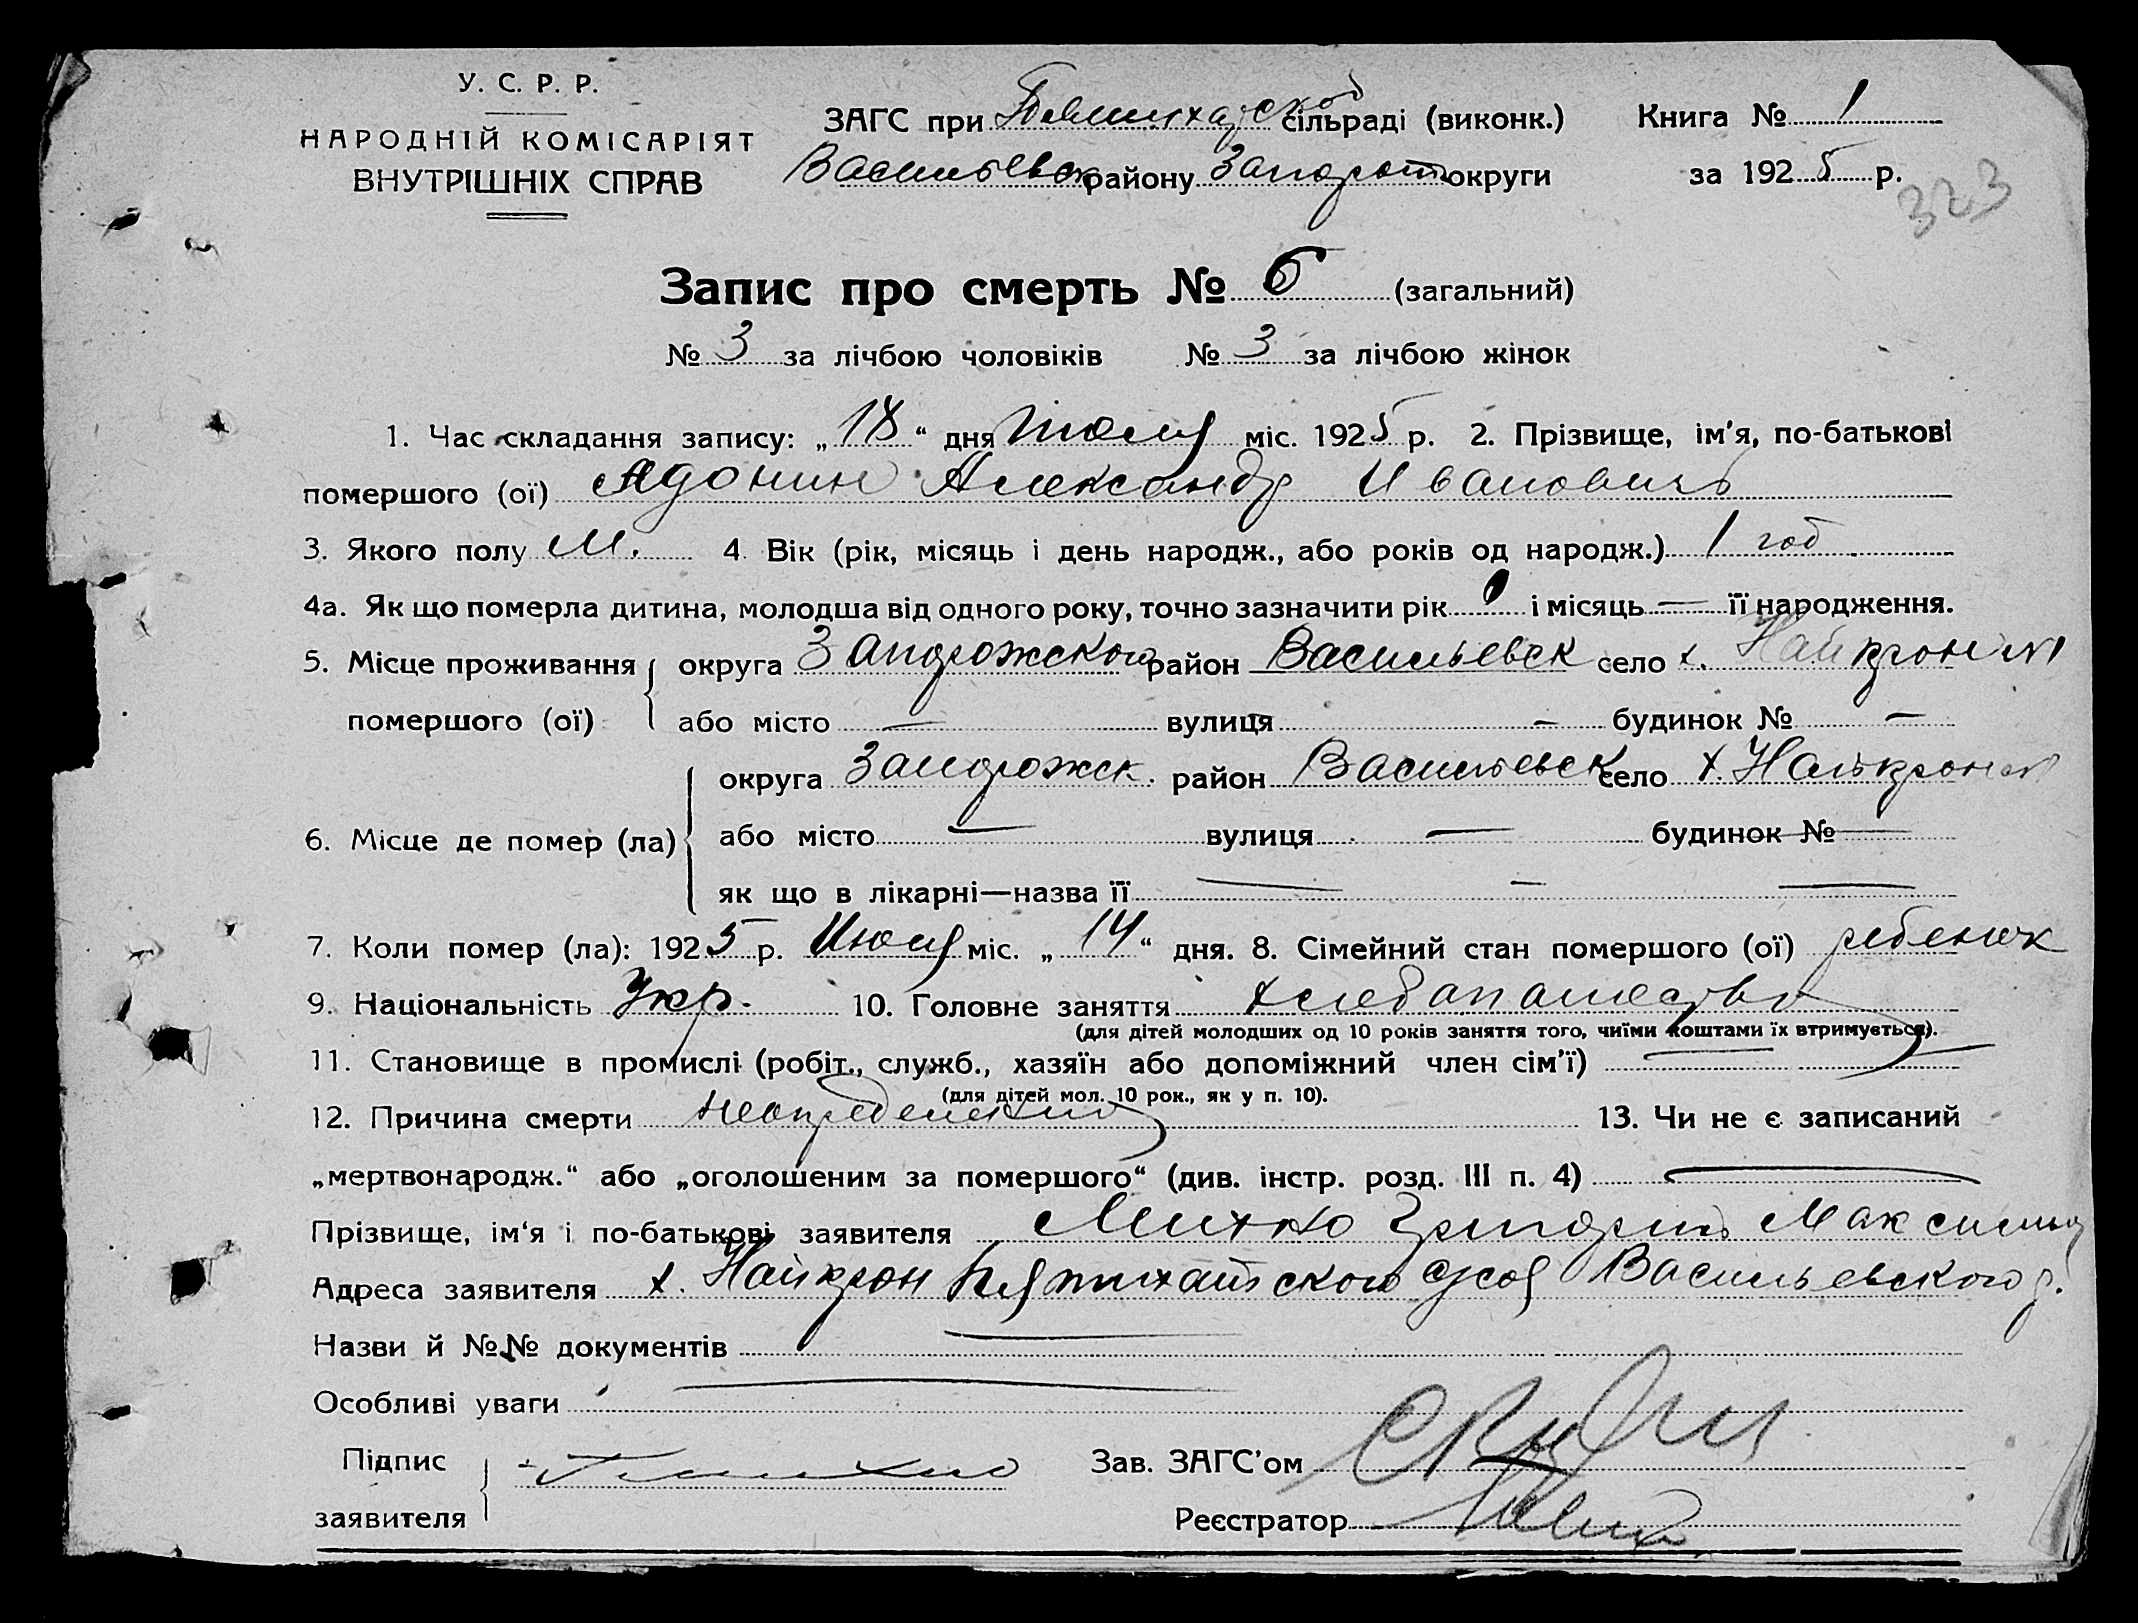 У. С. Р. Р.
НАРОДНІЙ КОМІСАРІЯТ
ВНУТРІШНІХ СПРАВ
ЗАГС при сільраді (виконк.)
Васильевск району Запорож округи
Книга № 1
за 1925 р.
323
Запис про смерть № 6 (загальний)
№ 3 за лічбою чоловіків № 3 за лічбою жінок
1. Час складання запису: „18“ дня Июля міс. 1925 р. 2. Прізвище, ім’я, по-батькові
помершого (ої) Адонин Александр Ивановичъ
3. Якого полу М. 4. Вік (рік, місяць і день народж., або років од народж.) 1 год
4а. Як що померла дитина, молодша від одного року, точно зазначити рік і місяць — її народження.
5. Місце проживання помершого (ої) округа Запорожского район Васильевск село х. Найкрон №1
або місто — вулиця — будинок № —
6. Місце де помер (ла) округа Запорожск. район Васильевск село х. Найкрон №
або місто — вулиця — будинок № —
як що в лікарні—назва її — — —
7. Коли помер (ла): 1925 р. Июля міс. „14“ дня. 8. Сімейний стан помершого (ої) ребенок
9. Національність Укр. 10. Головне заняття хлебопашество
(для дітей молодших од 10 років заняття того, чиїми коштами їх втримується).
11. Становище в промислі (робіт., служб., хазяїн або допоміжний член сім’ї) —
(для дітей мол. 10 рок., як у п. 10).
12. Причина смерти 13. Чи не є записаний
„мертвонародж.“ або „оголошеним за помершого“ (див. інстр. розд. III п. 4) —
Прізвище, ім‘я і по-батькові заявителя Михно Григорий Максимов
Адреса заявителя х. Найкрон Васильевского р.
Назви й №№ документів —
Особливі уваги —
Підпис заявителя
Зав. ЗАГС’ом
Реєстратор